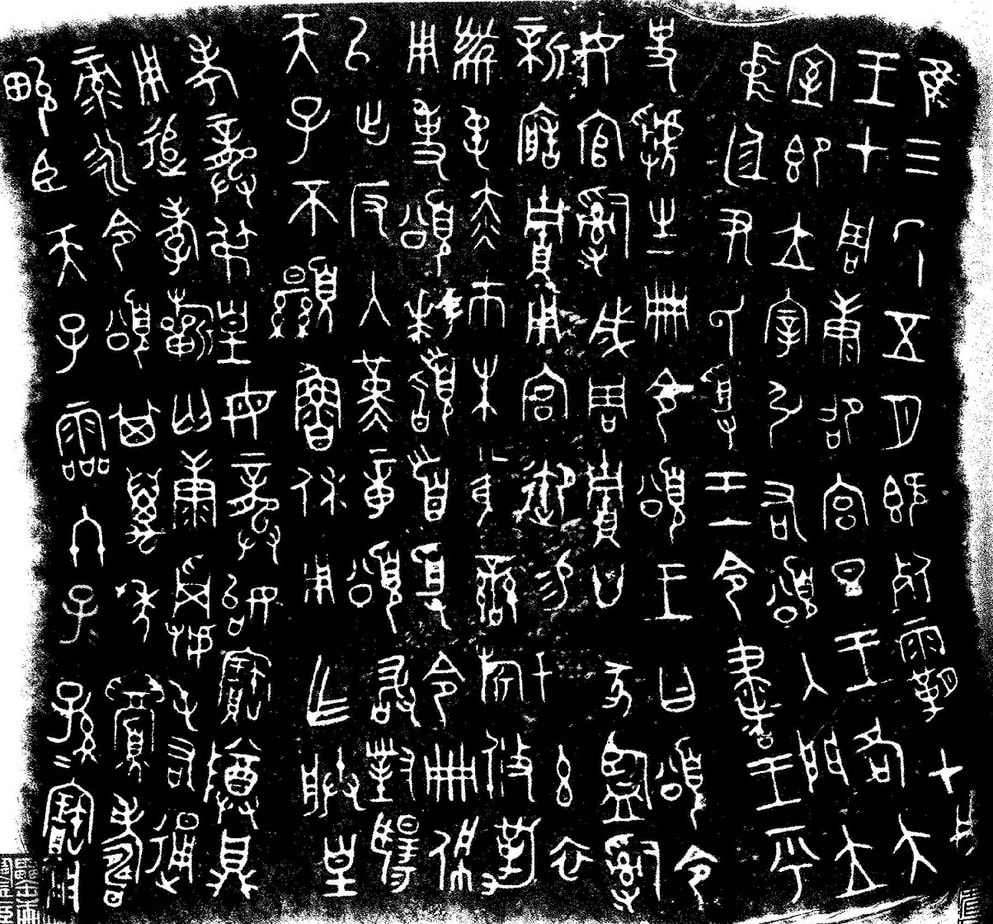 隹三年五月既死霸甲戌
王才周康卲宮旦王各大
室即立宰引右頌入門立
中廷尹氏受王令書王乎
史虢生冊令頌王曰頌令
女官𤔲成周貯廿家監𤔲
新造貯用宮御易女玄衣
黹屯赤巿朱黃䜌旂攸勒
用事頌拜𩒨首受令冊佩
以出反入堇章頌敢對揚
天子不顯魯休用乍朕皇
考龏弔皇母龏姒寶尊鼎
用追孝祈匄康𩛥屯右通
彔永令頌其萬年眉壽
畯臣天子霝冬子=孫=寶用